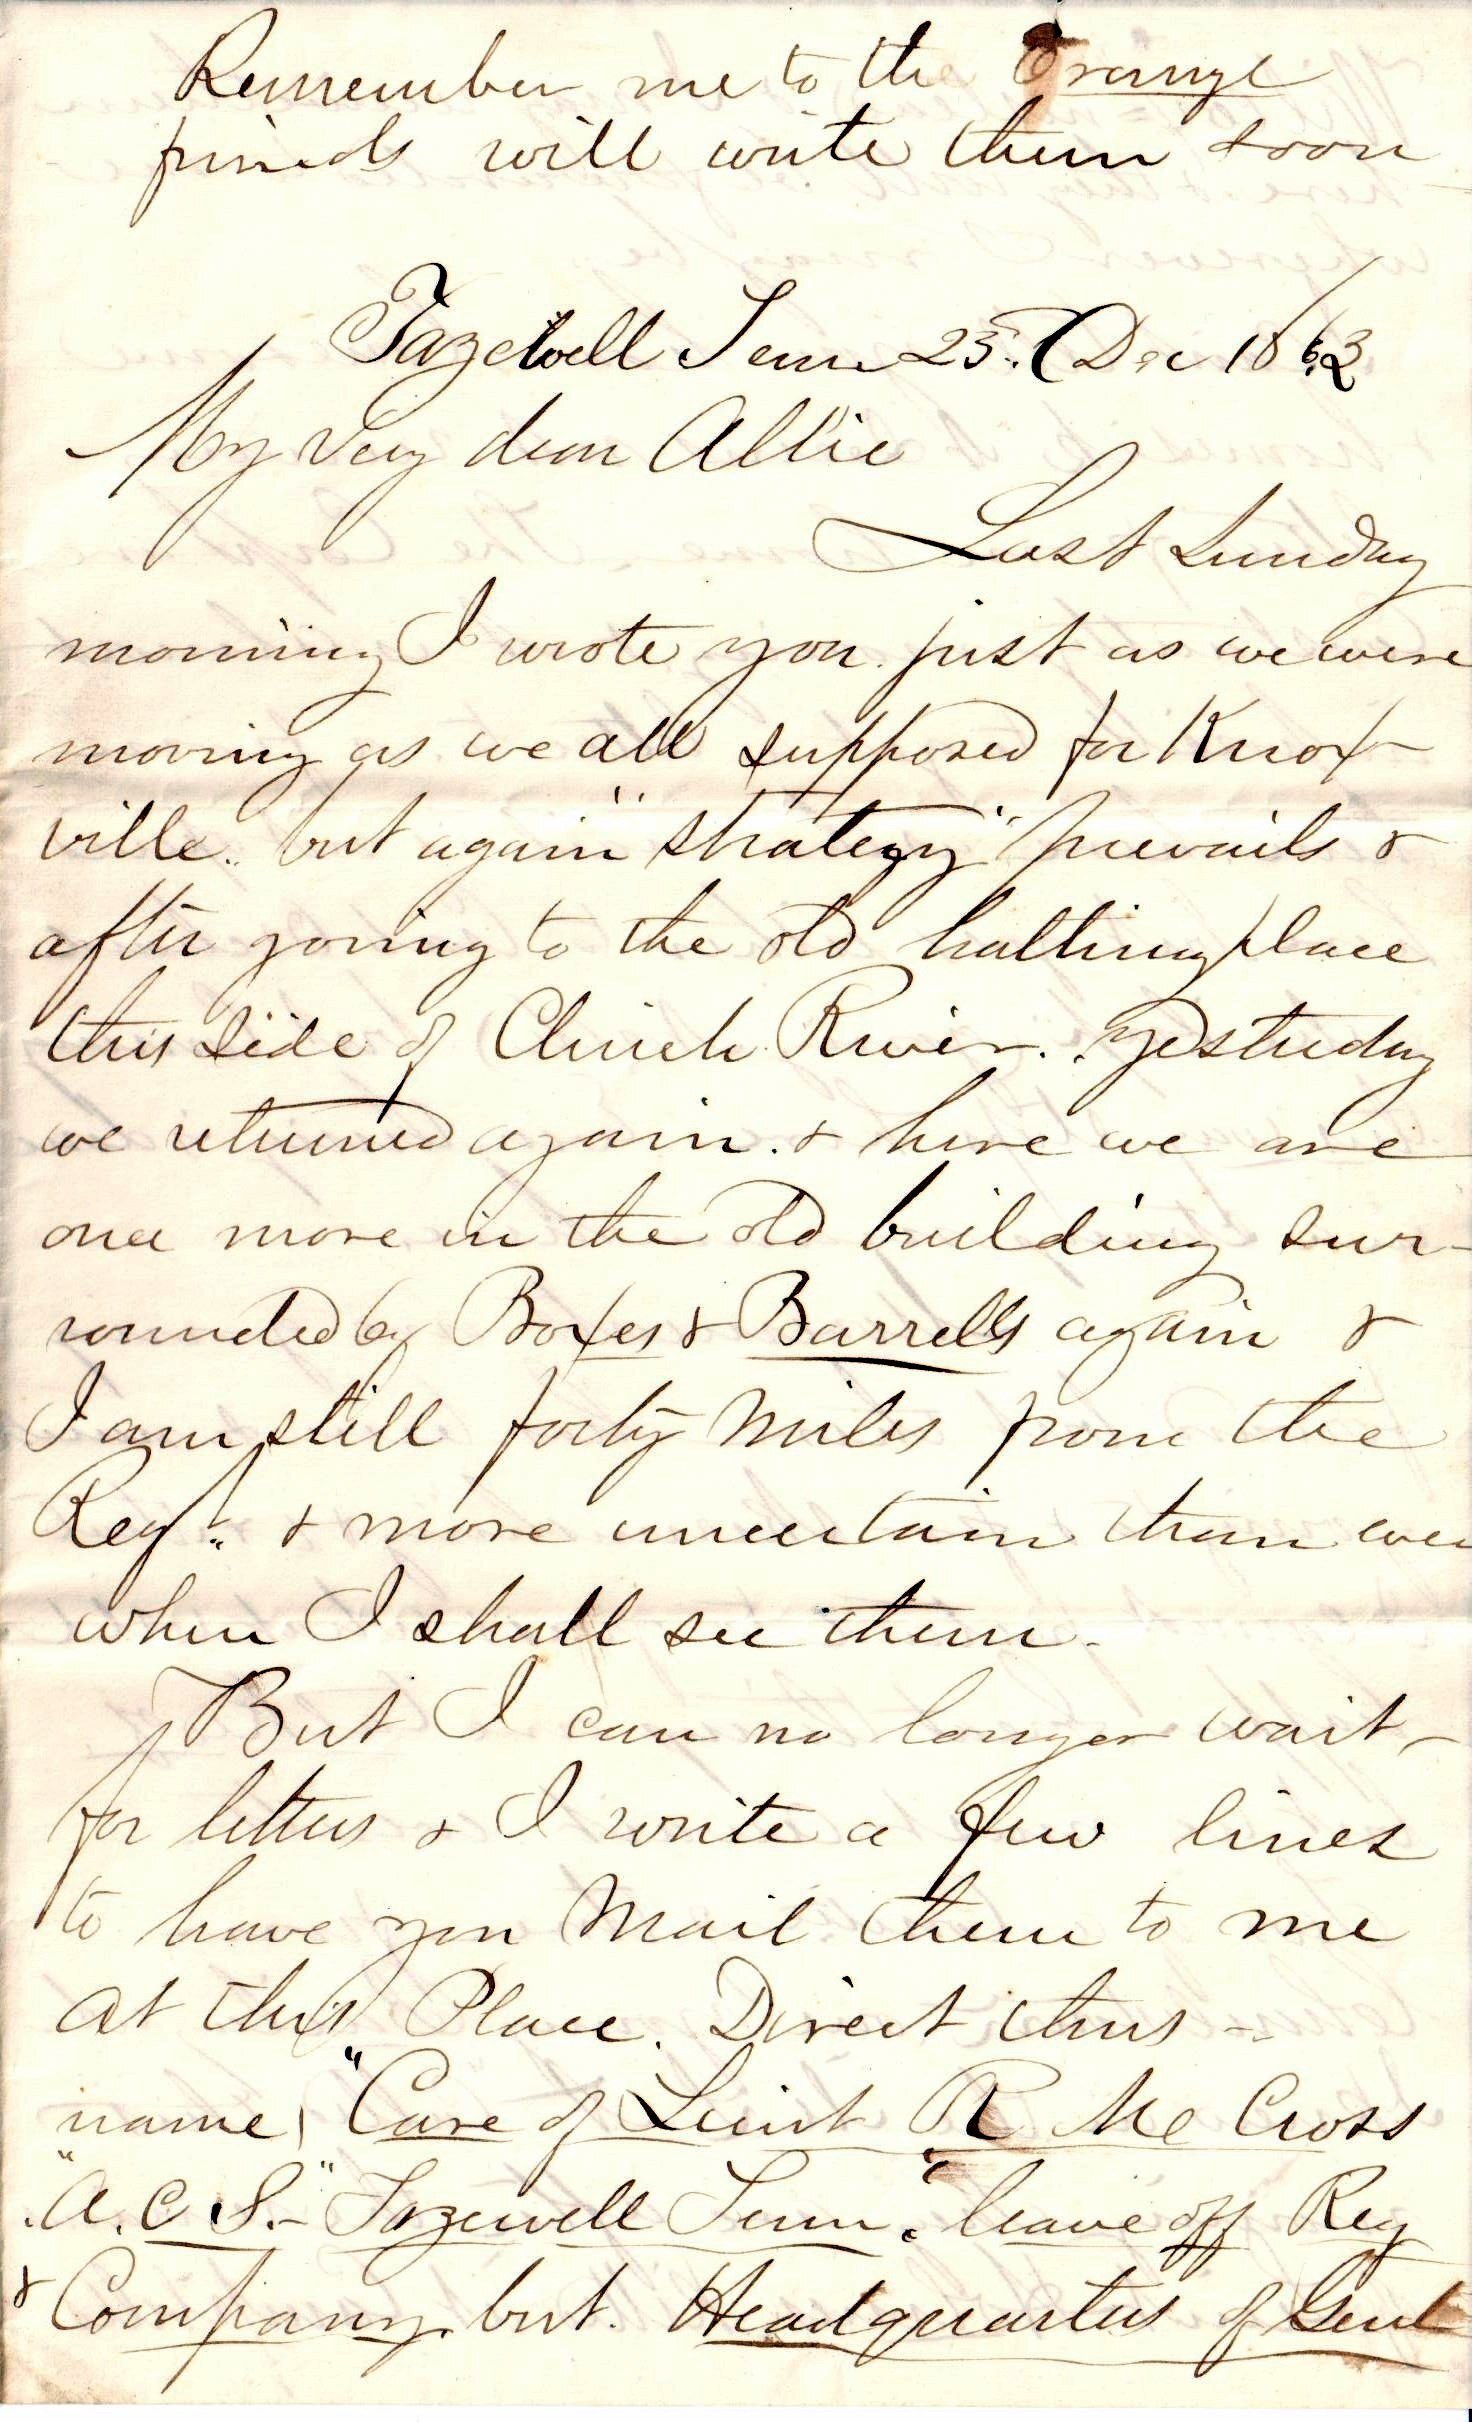 Remember me to the Orange
friends will write them soon
Tazewell Tenn 25. Dec 1863
My very dear Allie
Last Sunday
morning I wrote you just as we were
moving as we all supposed for Knox-
ville. but again "strategy" prevails &
after going to the old halting place
this side of Clinch River. Yesterday
we returned again. & here we are
once more in the old building sur-
rounded by Boxes & Barrells again &
I am still forty miles from the
Regt. & more uncertain than ever
when I shall see them.
But I can no longer wait
for letters & I write a few lines
to have you Mail them to me
at this Place. Direct thus -
name, "Care of Lieut R Mc Cross
"A. C. S." - Tazewell Tenn. leave off Reg
& Company. but. Headquarters of Genl